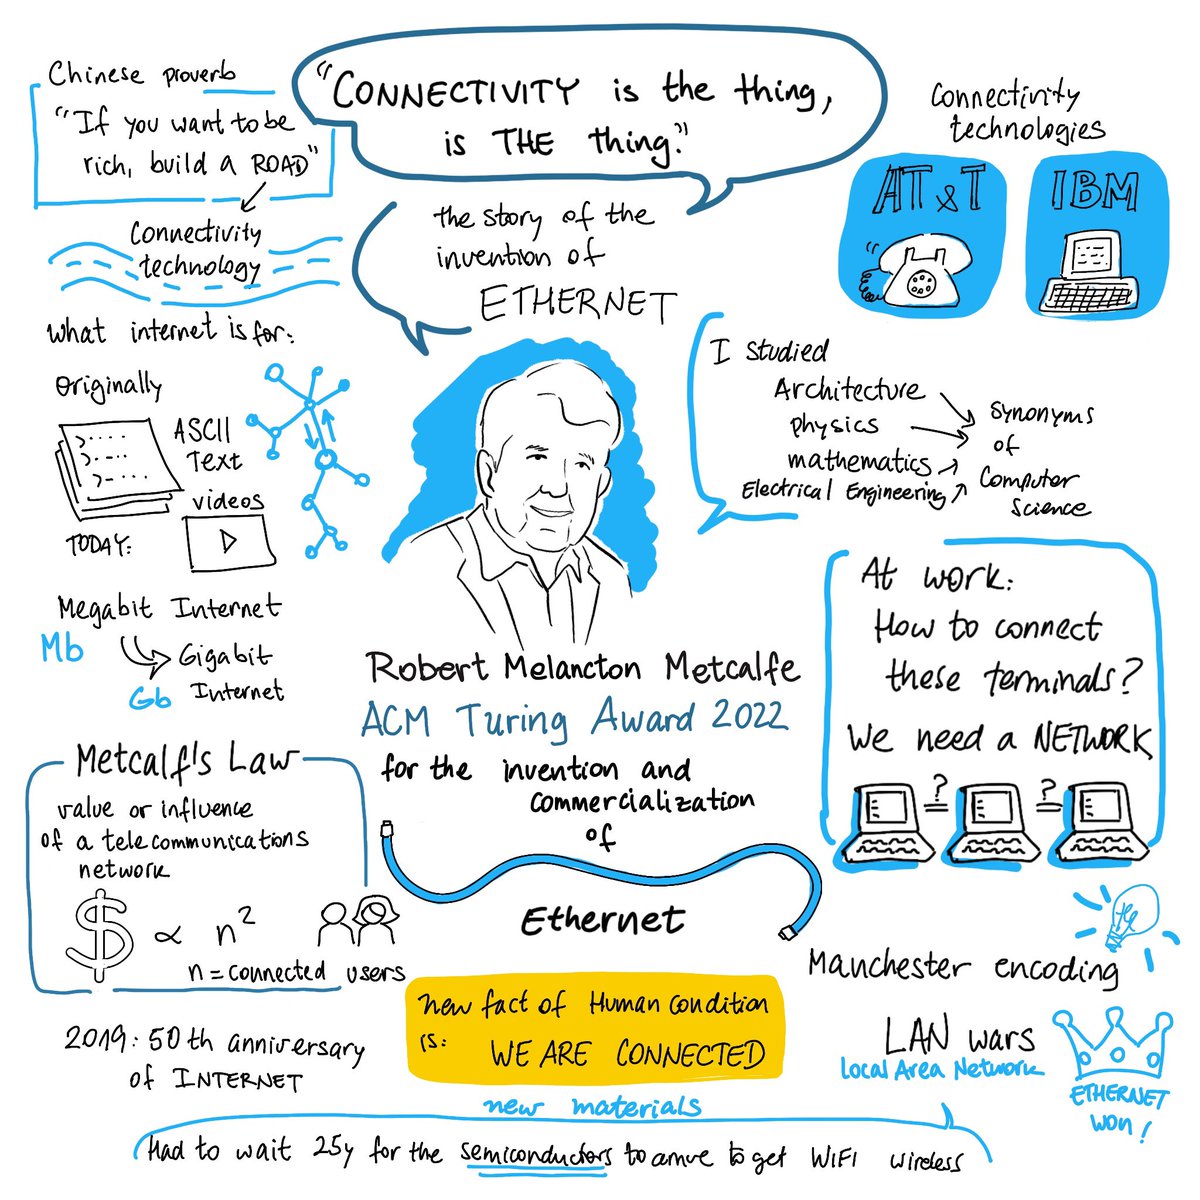 Chinese proverb
"If you want to be
rich, build a ROAD"
Connectivity
technology
"CONNECTIVITY is the thing,
is THE thing."
the story of the
invention of
ETHERNET
Connectivity
technologies
AT&T
IBM
What internet is for:
Originally
ASCII
Text
videos
TODAY:
Megabit Internet
Mb
Gigabit
Gb Internet
I studied
Architecture
physics
mathematics
Electrical Engineering
Synonyms
of
Computer
Science
Robert Melancton Metcalfe
ACM Turing Award 2022
for the invention and
commercialization
of
Ethernet
At work:
How to connect
these terminals?
We need a NETWORK
? ?
Metcalf's Law
value or influence
of a telecommunications
network
$ ∝ n²
n = connected users
Manchester encoding
LAN wars
Local Area Network
ETHERNET
WON!
2019: 50th anniversary
of INTERNET
new fact of Human Condition
is: WE ARE CONNECTED
new materials
Had to wait 25y for the semiconductors to arrive to get WIFI wireless